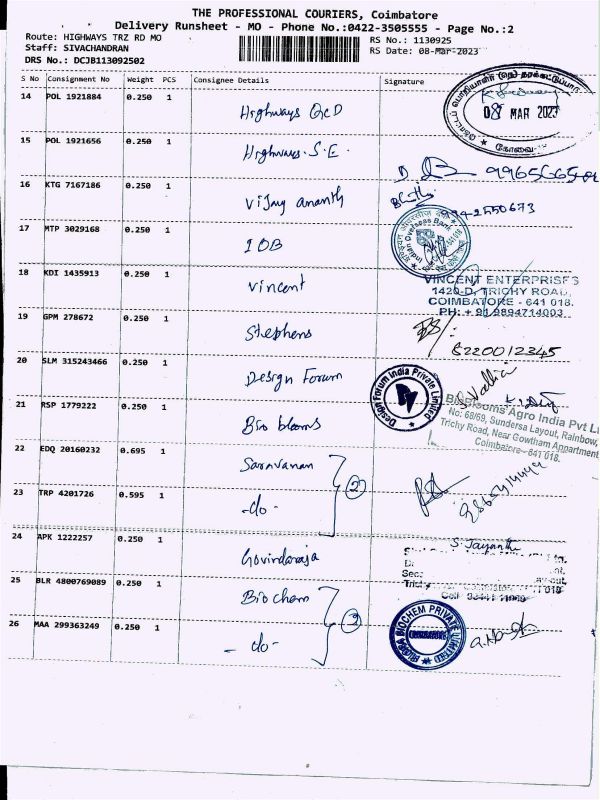 THE PROFESSIONAL COURIERS, Coimbatore
Delivery Runsheet - MO - Phone No.:0422-3505555 - Page No.:2
Route: HIGHWAYS TRZ RD MO
RS No.: 1130925
Staff: SIVACHANDRAN
RS Date: 08-Mar-2023
DRS No.: DCJB113092502
S No Consignment No Weight PCS Consignee Details Signature
14 POL 1921884 0.250 1 Highways QCD
08 MAR 2023
கோவை
15 POL 1921656 0.250 1 Highways. S.E.
16 KTG 7167186 0.250 1 Vijay ananth
17 MTP 3029168 0.250 1 IOB
Indian Overseas Bank
18 KDI 1435913 0.250 1 Vincent
VINCENT ENTERPRISES
1420-D, TRICHY ROAD,
COIMBATORE - 641 018.
PH: + 91 9894714003
19 GPM 278672 0.250 1 Stephens
8220012345
20 SLM 315243466 0.250 1 Design Forum
Design Forum India Private Limited
21 RSP 1779222 0.250 1 Bio blooms
BioBlooms Agro India Pvt Lt
No: 68/69, Sundersa Layout, Rainbow,
Trichy Road, Near Gowtham Appartment
Coimbatore - 641 018.
22 EDQ 20160232 0.695 1 Saravanan
2
23 TRP 4201726 0.595 1 -do-
24 APK 1222257 0.250 1 Govindaraja
S. Jayanthi
25 BLR 4800769089 0.250 1 Biochem
2
26 MAA 299363249 0.250 1 -do-
BIOCHEM PRIVATE LIMITED